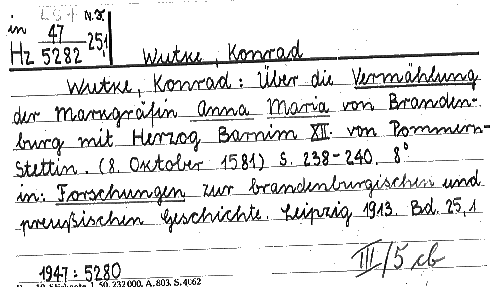 LS 1 N.F.
in 47
Hz 5282 25,1
Wutke, Konrad
Wutke, Konrad: Über die Vermählung
der Markgräfin Anna Maria von Branden-
burg mit Herzog Barnim XII. von Pommern-
Stettin. (8. Oktober 1581) S. 238-240. 8°
in: Forschungen zur brandenburgischen und
preußischen Geschichte. Leipzig 1913. Bd. 25,1
III/5 cb
1947:5280
50. 232000. A. 803. S. 4062